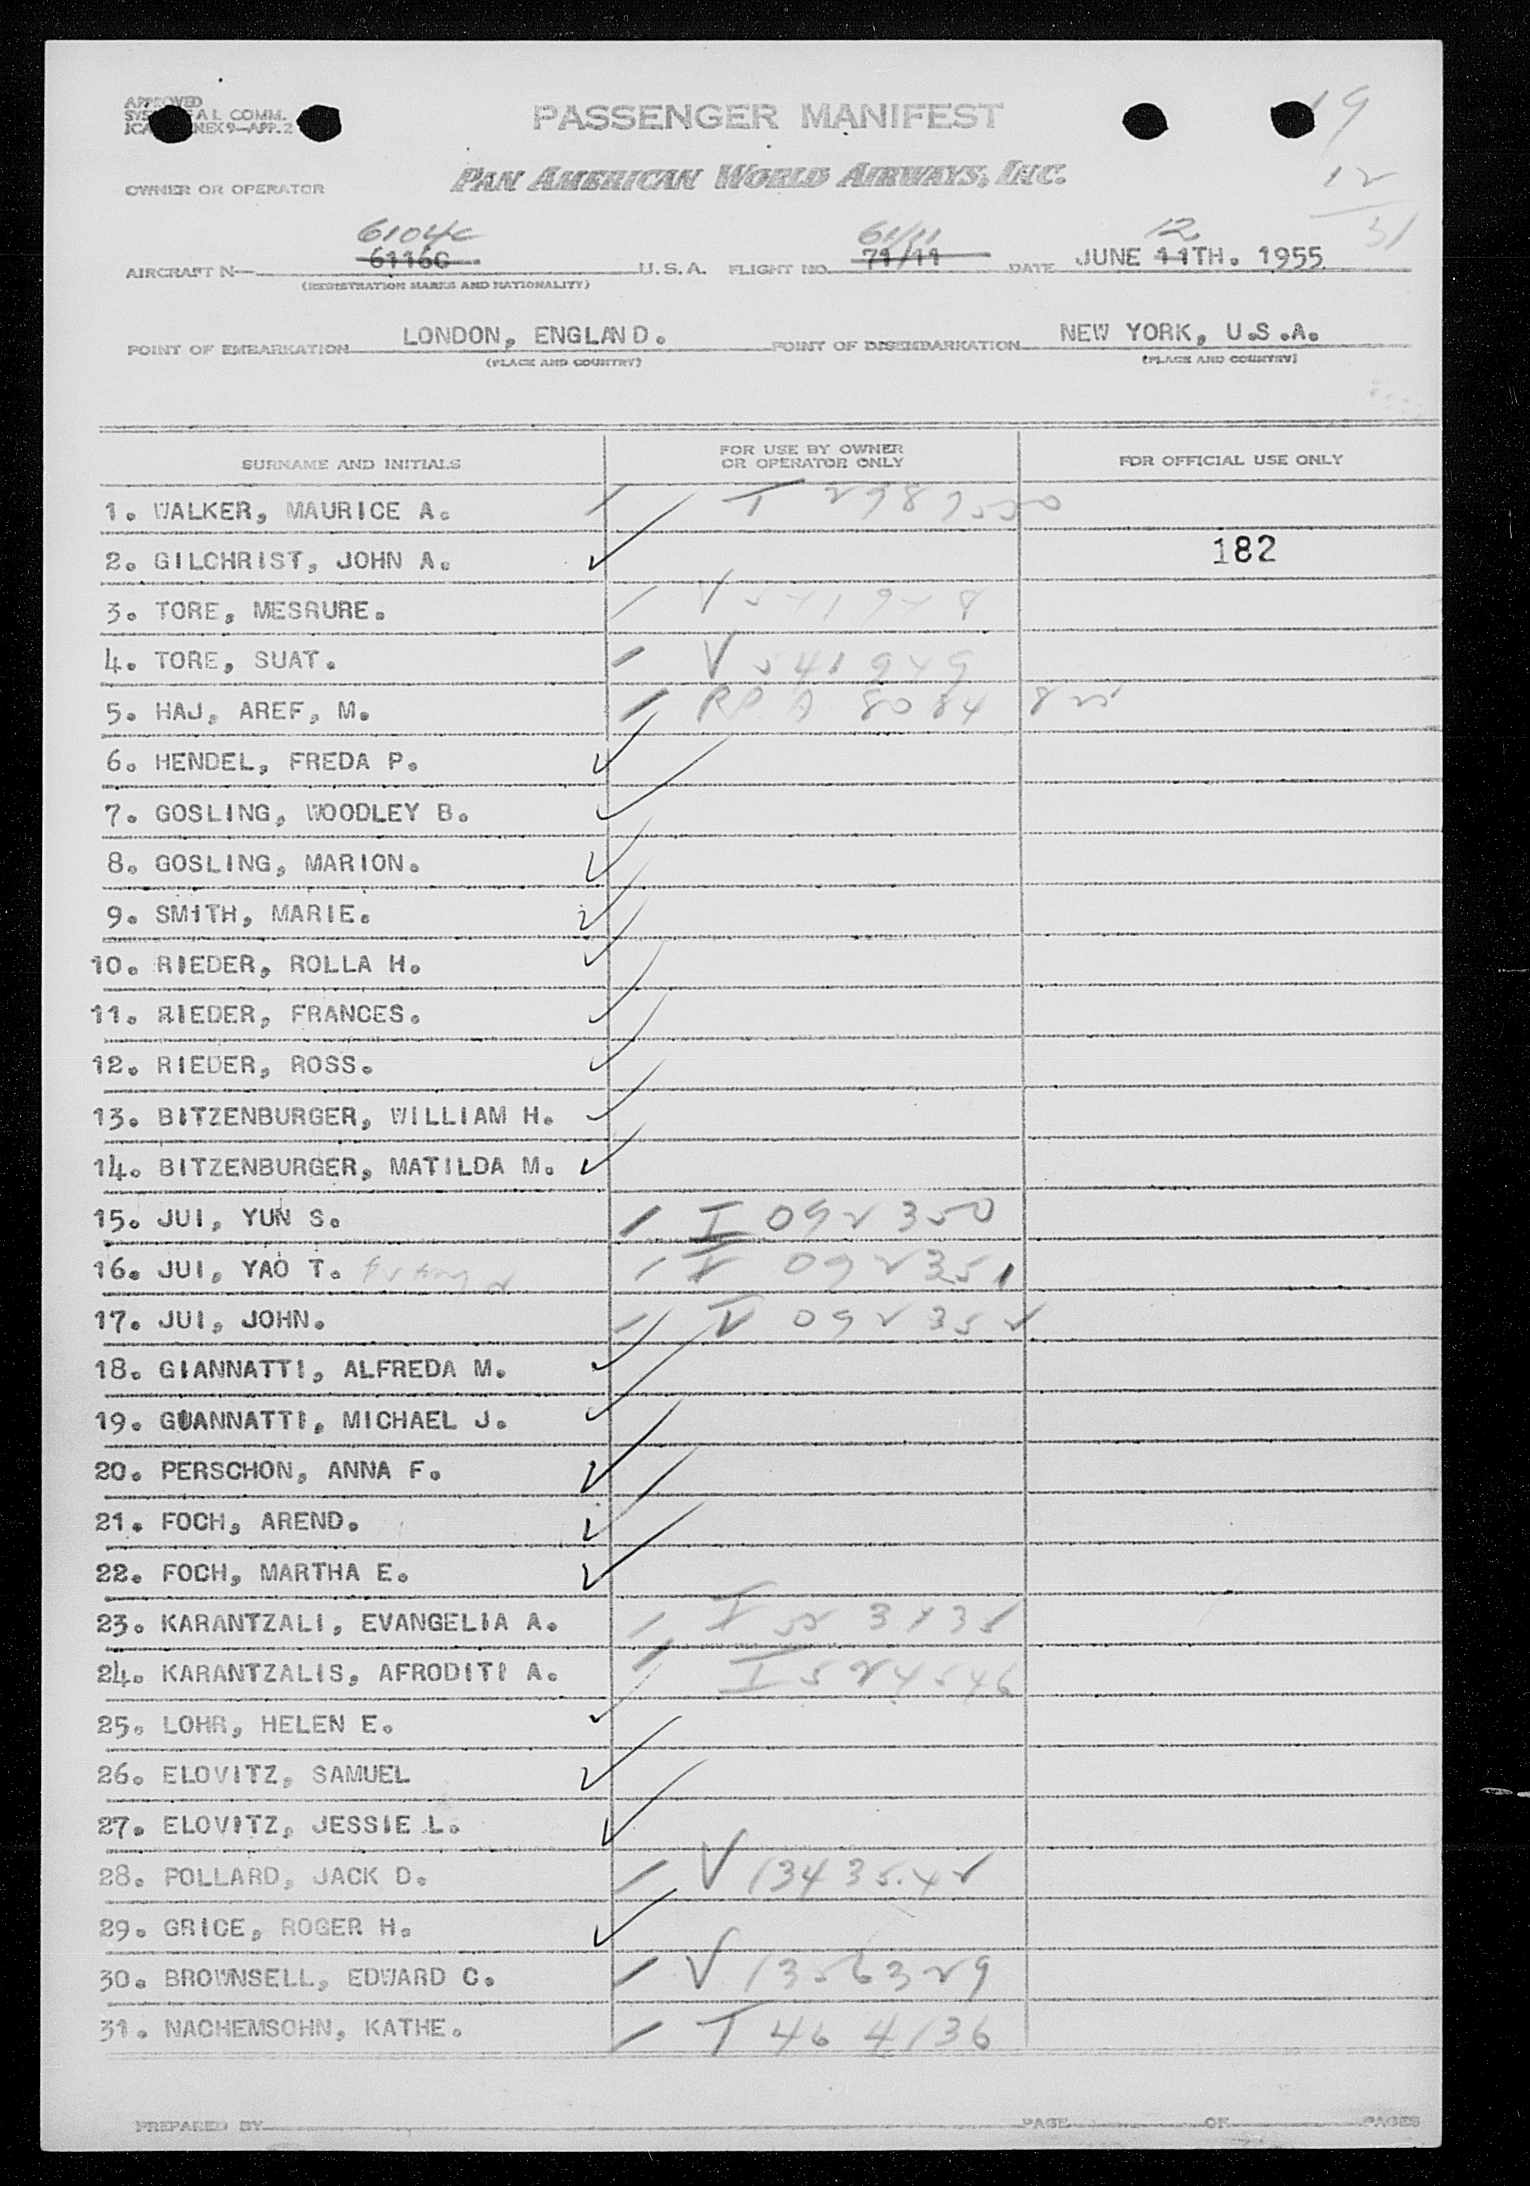 APPROVED
COMM.
NEX 9—APP. 2
PASSENGER MANIFEST
19
12
31
PAN AMERICAN WORLD AIRWAYS, INC.
OWNER OR OPERATOR
6104C 61/11 12
AIRCRAFT N— 6116C U.S.A. FLIGHT NO. 71/11 DATE JUNE 11TH. 1955
(REGISTRATION MARKS AND NATIONALITY)
POINT OF EMBARKATION LONDON, ENGLAND. POINT OF DISEMBARKATION NEW YORK, U.S.A.
(PLACE AND COUNTRY) (PLACE AND COUNTRY)
SURNAME AND INITIALS FOR USE BY OWNER OR OPERATOR ONLY FOR OFFICIAL USE ONLY
1. WALKER, MAURICE A.
2. GILCHRIST, JOHN A. ✓ 182
3. TORE, MESRURE. V 541948
4. TORE, SUAT. V 541949
5. HAJ, AREF, M. 8084
6. HENDEL, FREDA P. ✓
7. GOSLING, WOODLEY B. ✓
8. GOSLING, MARION. ✓
9. SMITH, MARIE. ✓
10. RIEDER, ROLLA H. ✓
11. RIEDER, FRANCES. ✓
12. RIEDER, ROSS. ✓
13. BITZENBURGER, WILLIAM H. ✓
14. BITZENBURGER, MATILDA M. ✓
15. JUI, YUN S. I 092350
16. JUI, YAO T. I 092351
17. JUI, JOHN. 092352
18. GIANNATTI, ALFREDA M. ✓
19. GUANNATTI, MICHAEL J. ✓
20. PERSCHON, ANNA F. ✓
21. FOCH, AREND. ✓
22. FOCH, MARTHA E. ✓
23. KARANTZALI, EVANGELIA A.
24. KARANTZALIS, AFRODITI A. I 524546
25. LOHR, HELEN E. ✓
26. ELOVITZ, SAMUEL ✓
27. ELOVITZ, JESSIE L. ✓
28. POLLARD, JACK D. V 1343542
29. GRICE, ROGER H. ✓
30. BROWNSELL, EDWARD C. V 1356329
31. NACHEMSOHN, KATHE. I 464136
PREPARED BY PAGE OF PAGES